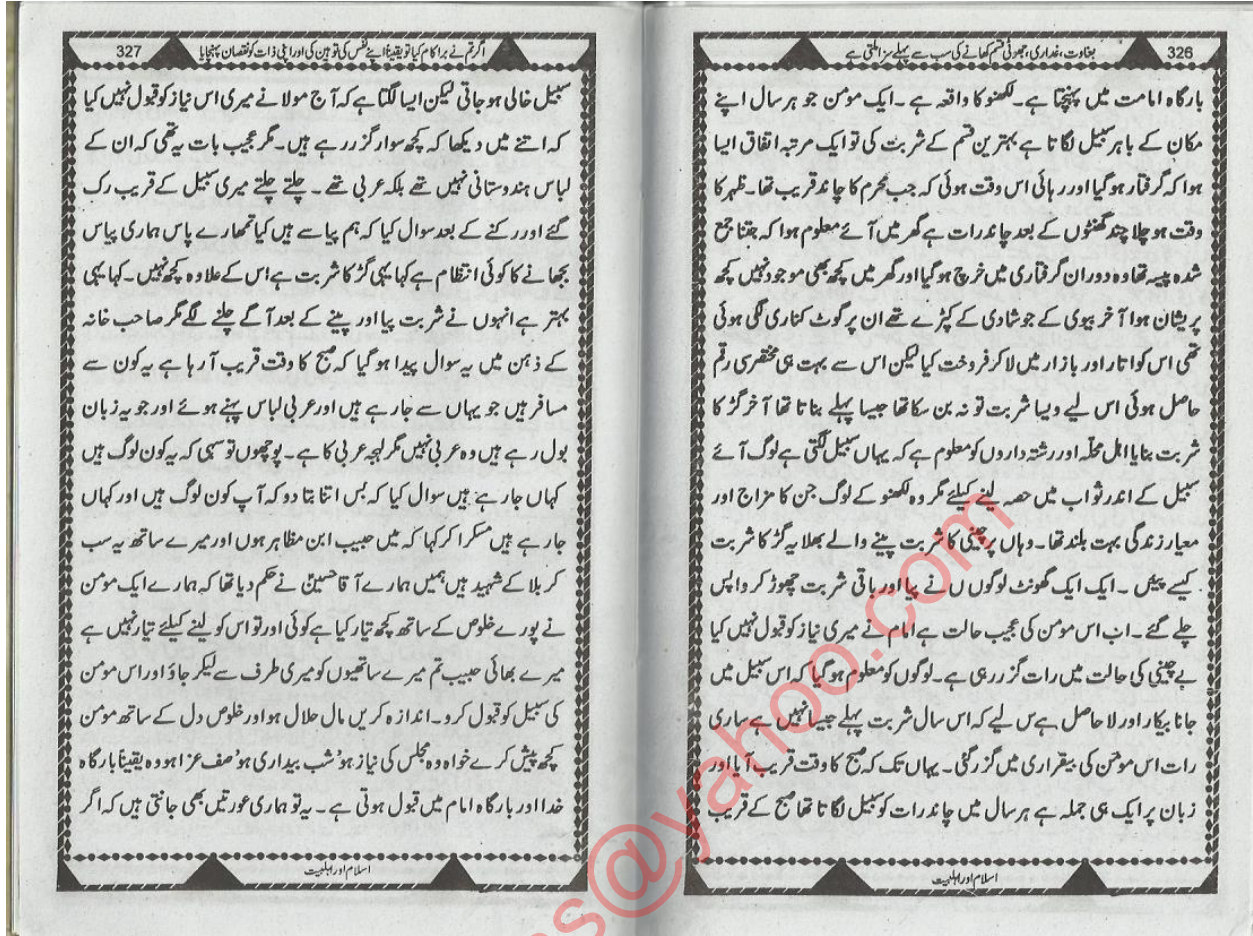 326
بغاوت، غداری، جھوٹی قسم کھانے کی سب سے پہلے سزا ملتی ہے
بارگاہ امامت میں پہنچتا ہے۔ لکھنو کا واقعہ ہے۔ ایک مومن جو ہر سال اپنے
مکان کے باہر سبیل لگاتا ہے بہترین قسم کے شربت کی تو ایک مرتبہ اتفاق ایسا
ہوا کہ گرفتار ہو گیا اور رہائی اس وقت ہوئی کہ جب محرم کا چاند قریب تھا۔ ظہر کا
وقت ہو چلا چند گھنٹوں کے بعد چاند رات ہے گھر میں آئے معلوم ہوا کہ جتنا جمع
شدہ پیسہ تھا وہ دوران گرفتاری میں خرچ ہو گیا اور گھر میں کچھ بھی موجود نہیں کچھ
پریشان ہوا آخر بیوی کے جو شادی کے کپڑے تھے ان پر گوٹ کناری لگی ہوئی
تھی اس کو اتار اور بازار میں لا کر فروخت کیا لیکن اس سے بہت ہی مختصر ی رقم
حاصل ہوئی اس لیے ویسا شربت تو نہ بن سکا تھا جیسا پہلے بناتا تھا آخر گڑ کا
شربت بنایا اہل محلّہ اور رشتہ داروں کو معلوم ہے کہ یہاں سبیل لگتی ہے لوگ آئے
سبیل کے اندر ثواب میں حصہ لینے کیلئے مگر وہ لکھنو کے لوگ جن کا مزاج اور
معیار زندگی بہت بلند تھا۔ وہاں پر چینی کا شربت پینے والے بھلا یہ گڑ کا شربت
کیسے پیئں ۔ ایک ایک گھونٹ لوگوں ں نے پیا اور باقی شربت چھوڑ کر واپس
چلے گئے۔ اب اس مومن کی عجیب حالت ہے امام نے میری نیاز کو قبول نہیں کیا
بے چینی کی حالت میں رات گزر رہی ہے۔ لوگوں کو معلوم ہو گیا کہ اس سبیل میں
جانا بیکار اور لا حاصل ہے س لیے کہ اس سال شربت پہلے جیسا نہیں ہے ساری
رات اس مومن کی بیقراری میں گزر گئی۔ یہاں تک کہ صبح کا وقت قریب آیا اور
زبان پر ایک ہی جملہ ہے ہر سال میں چاند رات کو سبیل لگاتا تھا صبح کے قریب
اسلام اور اہلبیت
327
اگر تم نے برا کام کیا تو یقیناً اپنے نفس کی توہین کی اور اپنی ذات کو نقصان پہنچایا
سبیل خالی ہو جاتی لیکن ایسا لگتا ہے کہ آج مولا نے میری اس نیاز کو قبول نہیں کیا
کہ اتنے میں دیکھا کہ کچھ سوار گزر رہے ہیں۔ مگر عجیب بات یہ تھی کہ ان کے
لباس ہندوستانی نہیں تھے بلکہ عربی تھے ۔ چلتے چلتے میری سبیل کے قریب رک
گئے اور رکنے کے بعد سوال کیا کہ ہم پیاسے ہیں کیا تمھارے پاس ہماری پیاس
بجھانے کا کوئی انتظام ہے کہا یہی گڑ کا شربت ہے اس کے علاوہ کچھ نہیں۔ کہا یہی
بہتر ہے انہوں نے شربت پیا اور پینے کے بعد آگے چلنے لگے مگر صاحب خانہ
کے ذہن میں یہ سوال پیدا ہو گیا کہ صبح کا وقت قریب آ رہا ہے یہ کون سے
مسافر ہیں جو یہاں سے جا رہے ہیں اور عربی لباس پہنے ہوئے اور جو یہ زبان
بول رہے ہیں وہ عربی نہیں مگر لہجہ عربی کا ہے۔ پوچھوں تو سہی کہ یہ کون لوگ ہیں
کہاں جا رہے ہیں سوال کیا کہ بس اتنا بتا دو کہ آپ کون لوگ ہیں اور کہاں
جا رہے ہیں مسکرا کر کہا کہ میں حبیب ابن مظاہر ہوں اور میرے ساتھ یہ سب
کربلا کے شہید ہیں ہمیں ہمارے آقا حسینؑ نے حکم دیا تھا کہ ہمارے ایک مومن
نے پورے خلوص کے ساتھ کچھ تیار کیا ہے کوئی اور تو اس کو لینے کیلئے تیار نہیں ہے
میرے بھائی حبیب تم میرے ساتھیوں کو میری طرف سے لیکر جاؤ اور اس مومن
کی سبیل کو قبول کرو۔ اندازہ کریں مال حلال ہو اور خلوص دل کے ساتھ مومن
کچھ پیش کرے خواہ وہ مجلس کی نیاز ہو' شب بیداری ہو' صف عزا ہو وہ یقیناً بارگاہ
خدا اور بارگاہ امام میں قبول ہوتی ہے۔ یہ تو ہماری عورتیں بھی جانتی ہیں کہ اگر
اسلام اور اہلبیت
s@yahoo.com